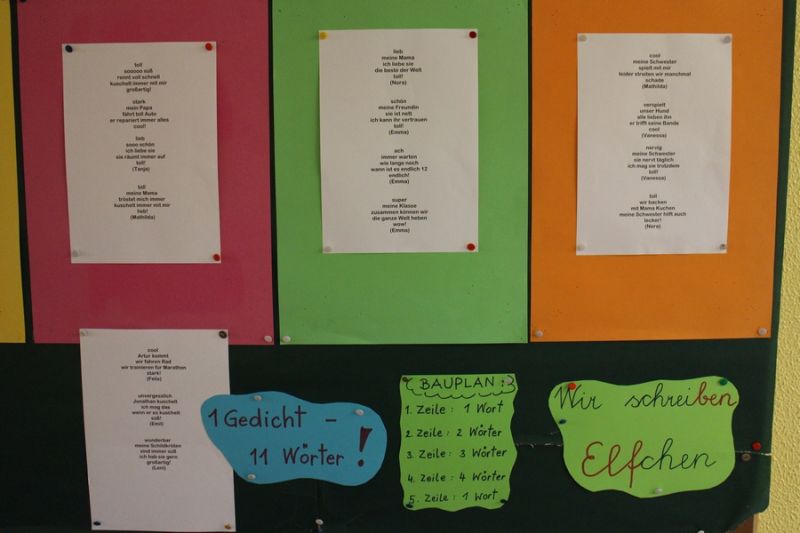 toll
sooooo süß
rennt voll schnell
kuschelt immer mit mir
großartig!
stark
mein Papa
fährt toll Auto
er repariert immer alles
cool!
lieb
sooo schön
ich liebe sie
sie räumt immer auf
toll!
(Tanja)
toll
meine Mama
tröstet mich immer
kuschelt immer mit mir
lieb!
(Mathilda)
lieb
meine Mama
ich liebe sie
die beste der Welt
toll!
(Nora)
schön
meine Freundin
sie ist nett
ich kann ihr vertrauen
toll!
(Emma)
ach
immer warten
wie lange noch
wann ist es endlich 12
endlich!
(Emma)
super
meine Klasse
zusammen können wir
die ganze Welt heben
wow!
(Emma)
cool
meine Schwester
spielt mit mir
leider streiten wir manchmal
schade
(Mathilda)
verspielt
unser Hund
alle lieben ihn
er trifft seine Bande
cool
(Vanessa)
nervig
meine Schwester
sie nervt täglich
ich mag sie trotzdem
toll!
(Vanessa)
toll
wir backen
mit Mama Kuchen
meine Schwester hilft auch
lecker!
(Nora)
cool
Artur kommt
wir fahren Rad
wir trainieren für Marathon
stark!
(Felix)
unvergesslich
Jonathan kuschelt
ich mag das
wenn er so kuschelt
süß!
(Emil)
wunderbar
meine Schildkröten
sind immer süß
ich hab sie gern
großartig!
(Leni)
1 Gedicht -
11 Wörter!
BAUPLAN:
1. Zeile: 1 Wort
2. Zeile: 2 Wörter
3. Zeile: 3 Wörter
4. Zeile: 4 Wörter
5. Zeile: 1 Wort
Wir schreiben
Elfchen